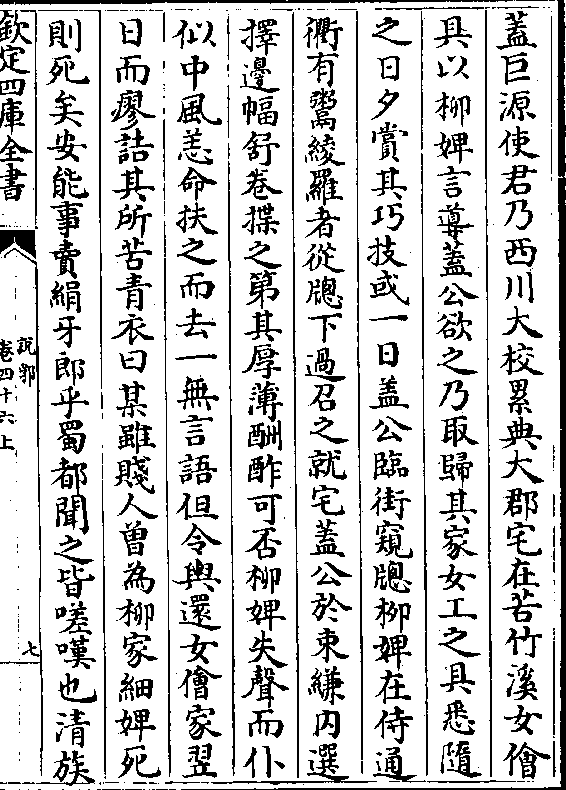 蓋巨源使君乃西川大校累典大郡宅在苦竹溪女儈
具以柳婢言導蓋公欲之乃取歸其家女工之具悉隨
之日夕賞其巧技或一日蓋公臨街窺牕柳婢在侍通
衢有鬻綾羅者從牕下過召之就宅蓋公於束縑內選
擇邊幅舒卷揲之第其厚薄酬酢可否柳婢失聲而仆
似中風恙命扶之而去一無言語但令輿還女儈家翌
日而瘳詰其所苦青衣曰某雖賤人曾為柳家細婢死
則死矣安能事賣絹牙郎乎蜀都聞之皆嗟嘆也清族
欽定四庫全書
說郛
卷四十六上
七